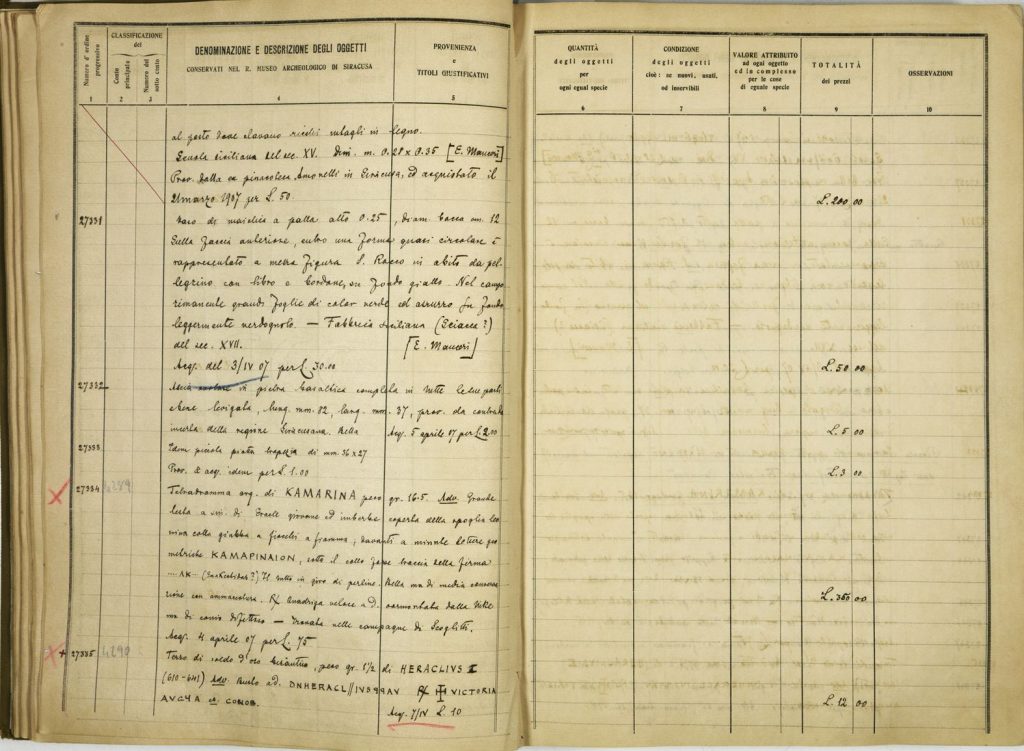 Numero d'ordine progressivo
CLASSIFICAZIONE dei
Conto principale
Numero del sotto conto
DENOMINAZIONE E DESCRIZIONE DEGLI OGGETTI
CONSERVATI NEL R. MUSEO ARCHEOLOGICO DI SIRACUSA
PROVENIENZA
e
TITOLI GIUSTIFICATIVI
1 2 3 4 5
al posto dove stavano ricchi intagli in legno.
Scuola siciliana del sec. XV. Dim. m. 0.28 x 0.35 [E. Mauceri]
Prov. dalla ex pinacoteca in Siracusa, ed acquistato il
21 marzo 1907 per L. 50
27331 Vaso di maiolica a palla alto 0.25, diam. bocca cm. 12
Sulla faccia anteriore, entro una forma quasi circolare è
rappresentato a mezza figura S. Rocco in abito da pel-
legrino con libro e bordone, su fondo giallo. Nel campo
rimanente grandi foglie di color verde ed azzurro su fondo
leggermente verdognolo. — Fabbrica siciliana (Sciacca?)
del sec. XVII. [E. Mauceri]
Acq. del 3/IV 07 per L. 30.00
27332 Ascia in pietra basaltica completa in tutte le sue parti
bene levigata, lung. mm. 82, larg. mm. 37, prov. da contrada
incerta della regione Siracusana. Bella Acq. 5 aprile 07 per L. 2.00
27333 Idem piccola piatta trapezia di mm. 36 x 27
Prov. & acq. idem per L. 1.00
27334 4289 Tetradramma arg. di KAMARINA peso gr. 16.5 Adv. Grande
testa a sin. di Eracle giovane ed imberbe coperta della spoglia leo-
nina colla giubba a fiocchi a fiamma; davanti a minute lettere
KAMAPINAION, sotto il collo traccia della firma
(Exekestidas?) Il tutto in giro di perline. Bella ma di media conserva-
zione con ammaccatura. R/ Quadriga veloce a d. sormontata dalla Nike
ma di conio difettoso — Trovata nelle campagne di Scoglitti.
Acq. 4 aprile 07 per L. 75
+ 27335 4290 Terzo di soldo d'oro bizantino, peso gr. 1 1/2 di HERACLIVS I
(610-641) Adv. Busto a d. DNHERACL//IVSPPAV R/ VICTORIA
AVGVA CONOB.
Acq. 7/IV L. 10
QUANTITÀ
degli oggetti
per
ogni egual specie
CONDIZIONE
degli oggetti
cioè: se nuovi, usati,
od inservibili
VALORE ATTRIBUITO
ad ogni oggetto
ed in complesso
per le cose
di eguale specie
TOTALITÀ
dei prezzi
OSSERVAZIONI
6 7 8 9 10
L. 200 00
L. 50 00
L. 5 00
L. 3 00
L. 350 00
L. 12 00